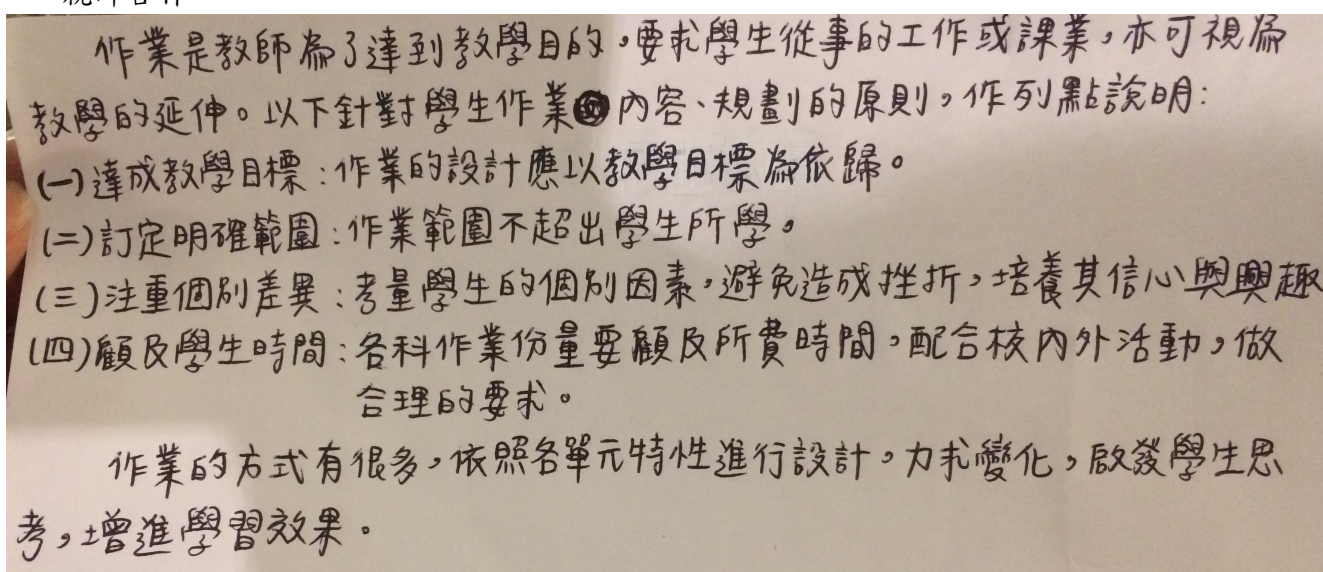 作業是教師為了達到教學目的，要求學生從事的工作或課業，亦可視為
教學的延伸。以下針對學生作業內容、規劃的原則，作列點說明：
(一)達成教學目標：作業的設計應以教學目標為依歸。
(二)訂定明確範圍：作業範圍不超出學生所學。
(三)注重個別差異：考量學生的個別因素，避免造成挫折，培養其信心與興趣
(四)顧及學生時間：各科作業份量要顧及所費時間，配合校內外活動，做
合理的要求。
作業的方式有很多，依照各單元特性進行設計，力求變化，啟發學生思
考，增進學習效果。